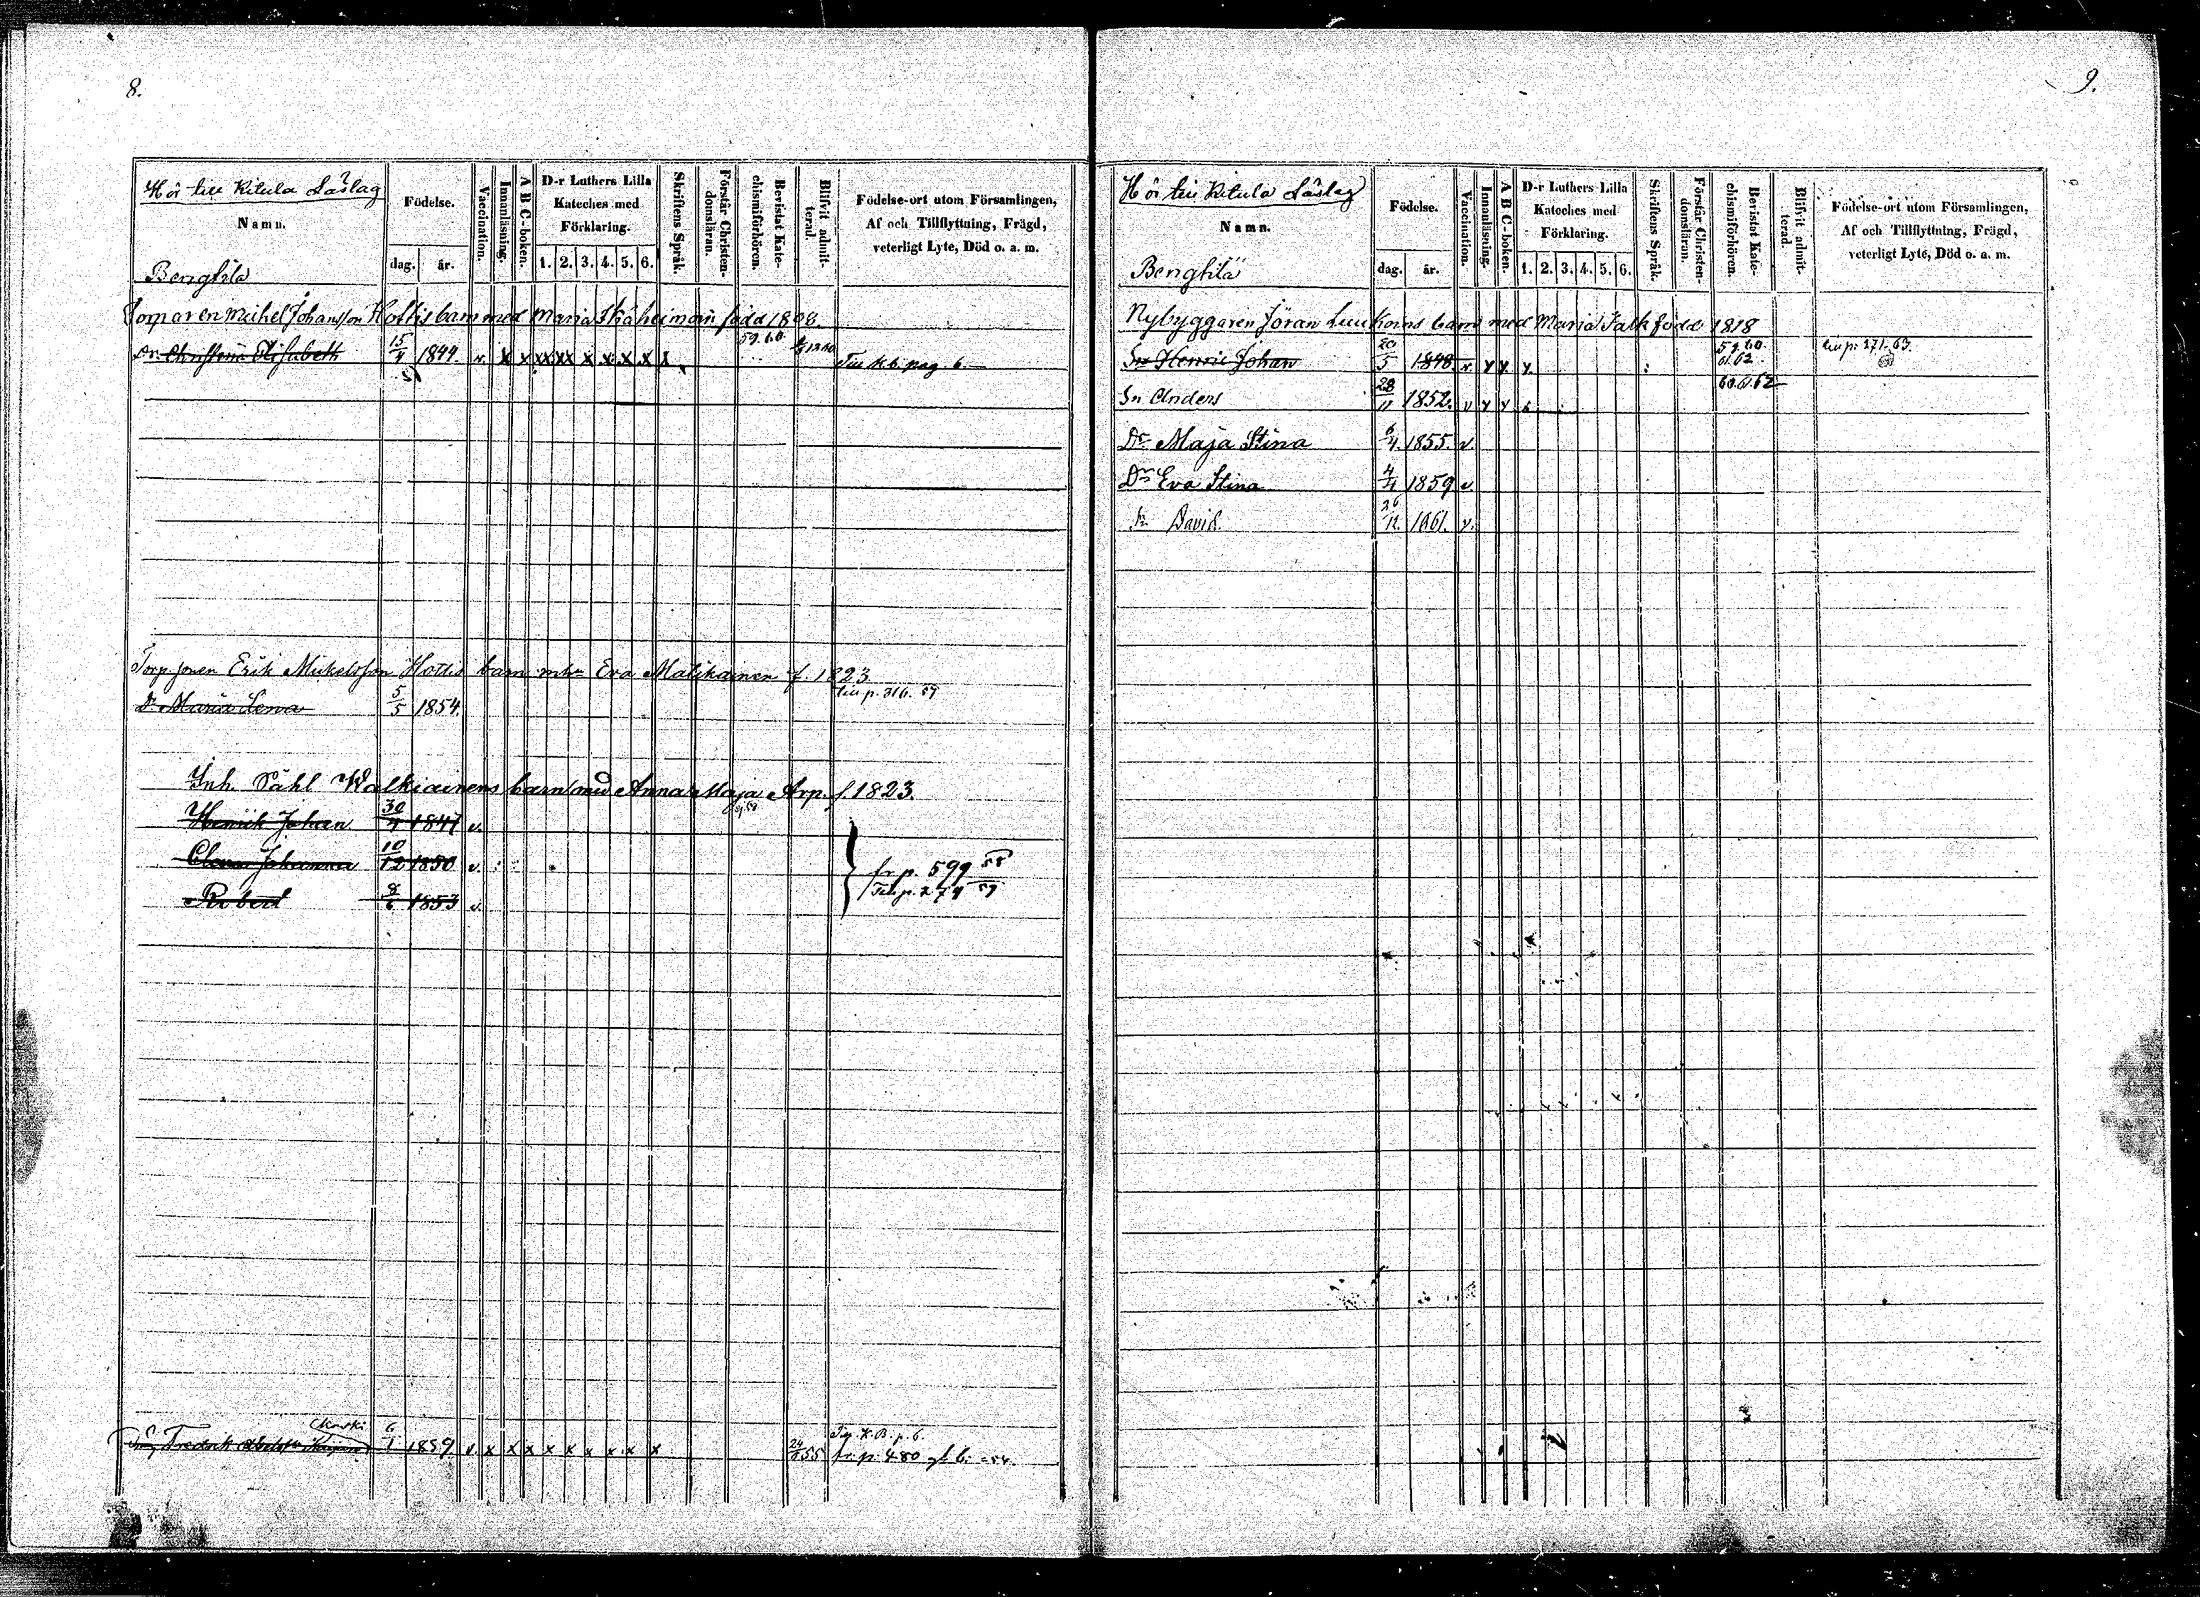 8.
Hör till Kitula Läslag
Namn.
Benghtlä
Födelse.
dag. år.
Vaccination.
Innanläsning.
A B C-boken.
D-r Luthers Lilla
Kateches med
Förklaring.
1. 2. 3. 4. 5. 6.
Skriftens Språk.
Förstår Christen-
domsläran.
Bevistat Kate-
chismiförhören.
Blifvit admit-
terad.
Födelse-ort utom Församlingen,
Af och Tillflyttning, Frägd,
veterligt Lyte, Död o. a. m.
Torparen Michel Johansson Hottis barn med Maria född 1808.
59. 60.
Dr. Christina Elisabeth 15/4 1844. v. x x xx xx x x x x x Till k. b. pag. 6.
Torp. sonen Erik Mickelsson Hottis barn mhu Eva Matikainen f. 1823.
till p. 316. 59
Dr Maria Lena 5/5 1854.
Inh. Påhl Walkiainens barn med Anna Maja Arp. f. 1823.
Henrik Johan 30/4 1847 v.
Elena Johanna 10/12 1850 v.
fr p. 599 58
Till p. 274 59
Robert 8/6 1853 v.
Till K. B. p. 6.
Fredrik 6/1 1859 v. x x x x x x x x x 24/ 55 fr. p. 480 gl. b. 54.
9.
Hör till Kitula Läslag
Namn.
Benghtlä
Födelse.
dag. år.
Vaccination.
Innanläsning.
A B C-boken.
D-r Luthers Lilla
Kateches med
Förklaring.
1. 2. 3. 4. 5. 6.
Skriftens Språk.
Förstår Christen-
domsläran.
Bevistat Kate-
chismiförhören.
Blifvit admit-
terad.
Födelse-ort utom Församlingen,
Af och Tillflyttning, Frägd,
veterligt Lyte, Död o. a. m.
Nybyggaren Jöran Luukoins barn med Maria Falk född 1818
Sn Henric Johan 20/5 1848. v. y y. y. 59. 60. 61. 62. till p: 271. 63.
Sn Anders 28/11 1852. v y y 60. 61. 62
Dr Maja Stina 6/4. 1855. v.
Dr Eva Stina 4/4 1859 v.
Sn David. 26/12. 1861. v.